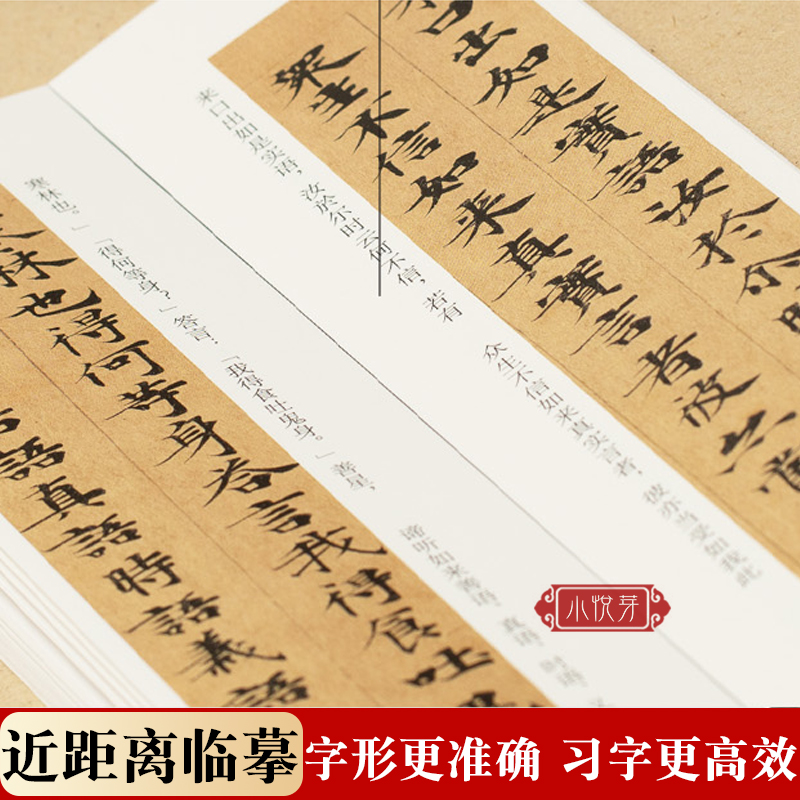 口出如是實語汝於尒時
眾生不信如来真實言者彼亦當
来口出如是实语，汝於尔时云何不信，若有
众生不信如来真实言者，彼亦当受如我此
寒林也。」「得何等身？」答言：「我得食吐鬼身。」善星，
谛听如来善语、真语、时语、义
林也得何等身答言我得食吐
語真語時語義語
小悦芽
近距离临摹 字形更准确 习字更高效